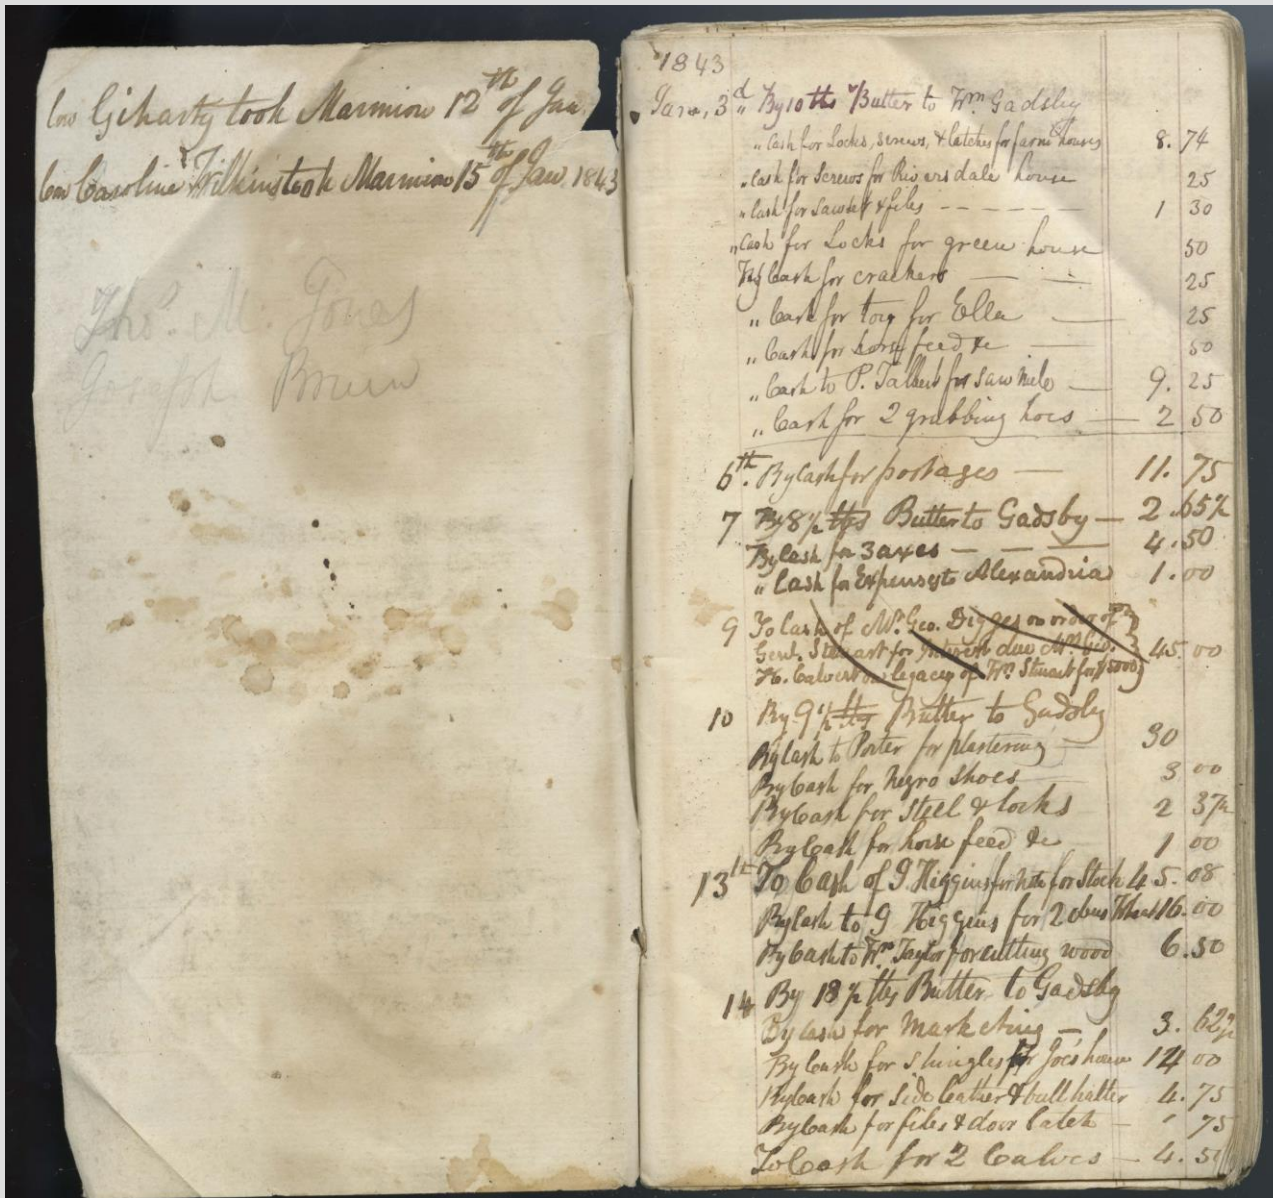 Cow Giharty took Marmion 12th of Jan,
Cow Caroline Wilkins took Marmion 15th of Jan, 1843
Thos. M. Jones
Joseph
1843
Jan, 3d " By 10 lbs Butter to Wm Gadsby
" Cash for Locks, screws, & latches for farm houses 8. 74
" Cash for Screws for Riversdale house 25
" Cash for Sawset & files 1 30
" Cash for Locks for green house 50
By Cash for crackers 25
" Cash for toy for Ella 25
" Cash for horse feed &c 50
" Cash to P. Talbert for Saw 9. 25
" Cash for 2 grubbing hoes 2 50
6th. By Cash for postages 11. 75
7 By 8½ lbs Butter to Gadsby 2 .65½
By Cash for 3 axes 4.50
" Cash for Expenses to Alexandria 1.00
9 To Cash of Mr. Geo. Digges on order of
Genl. Steuart for Interest due Mr Geo. 45.00
H. Calvert on legacy of Wm Stuart for $5000
10 By 9½ lbs Butter to Gadsby
By Cash to Porter for plastering 30
By Cash for Negro Shoes 3 00
By Cash for Steel & locks 2 37½
By Cash for horse feed &c 1 00
13th To Cash of J Higgins for note for Stock 45.08
By Cash to J Higgins for 2 16.00
By Cash to Wm Taylor for cutting wood 6.50
14 By 18½ lbs Butter to Gadsby
By Cash for Marketing 3. 62½
By Cash for Shingles for Joe's house 14 00
By Cash for side leather & bull halter 4.75
By Cash for files & door latch " 75
To Cash for 2 Calves 4.50